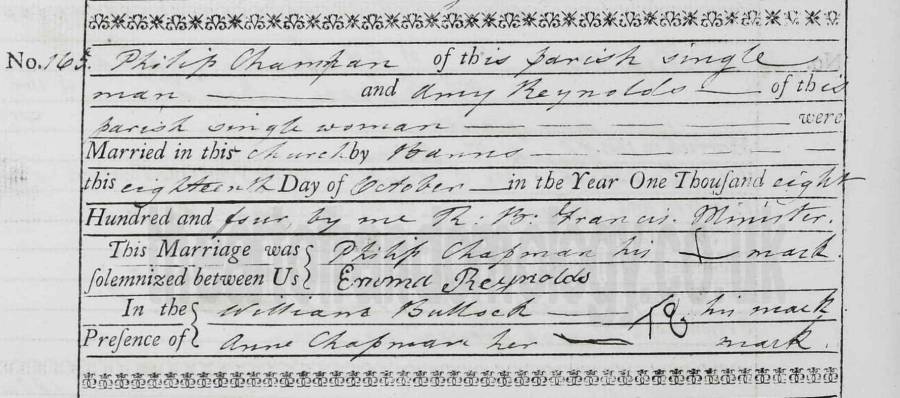 No. 165. Philip Champan of this parish single
man and Amy Reynolds of this
parish single woman were
Married in this church by Banns
this eighteenth Day of October in the Year One Thousand eight
Hundred and four, by me R. B. Francis. Minister.
This Marriage was solemnized between Us { Philip Chapman his mark
Emma Reynolds
In the Presence of { William Bullock his mark
Anne Chapman her mark